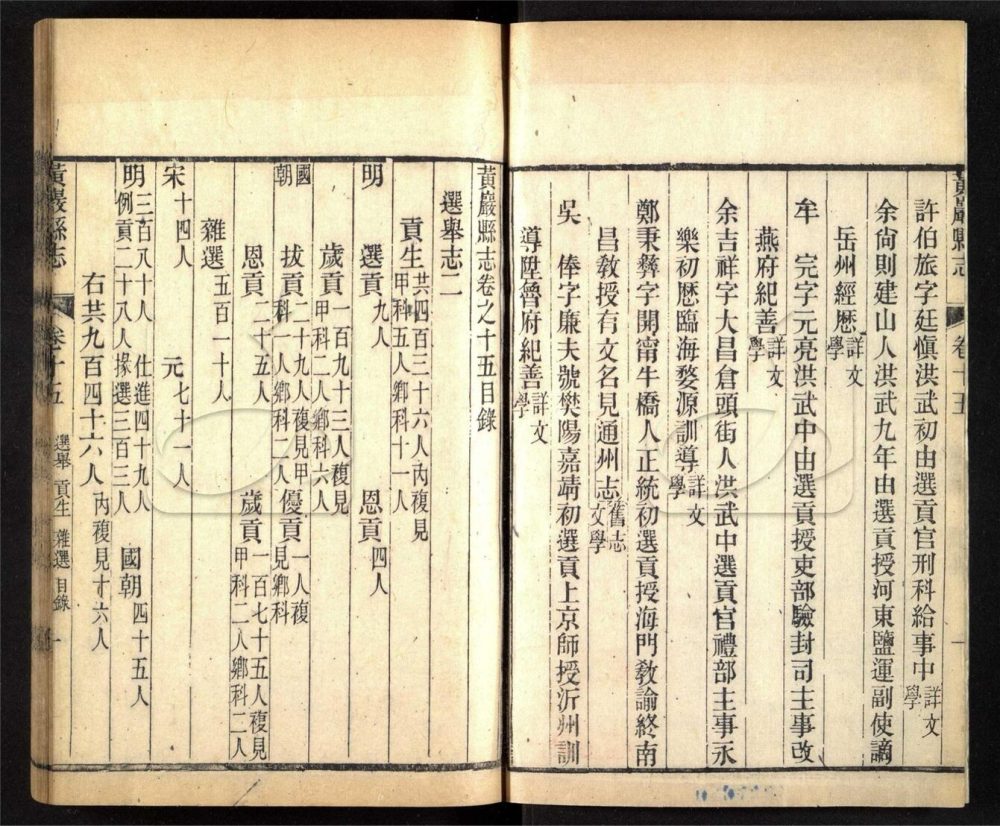 黃巖縣志 卷十五 一
許伯旅字廷慎洪武初由選貢官刑科給事中詳文學
余尚則建山人洪武九年由選貢授河東鹽運副使謫
岳州經歷詳文學
牟 完字元亮洪武中由選貢授吏部驗封司主事改
燕府紀善詳文學
余吉祥字大昌倉頭街人洪武中選貢官禮部主事永
樂初歷臨海婺源訓導詳文學
鄭秉彝字開甯牛橋人正統初選貢授海門教諭終南
昌教授有文名見通州志舊志文學
吳 俸字廉夫號樊陽嘉靖初選貢上京師授沂州訓
導陞魯府紀善詳文學
黃巖縣志卷之十五目錄
選舉志二
貢生共四百三十六人內複見甲科五人鄉科十一人
明 選貢九人 恩貢四人
歲貢一百九十三人複見甲科二人鄉科六人
國朝 拔貢二十九人複見甲科一人鄉科二人 優貢一人複見鄉科
恩貢二十五人 歲貢一百七十五人複見甲科二人鄉科二人
雜選五百一十人
宋十四人 元七十一人
明三百八十人 仕進四十九人例貢二十八人掾選三百三人 國朝四十五人
右共九百四十六人內複見十六人
黃巖縣志 卷十五 選舉 貢生 雜選 目錄 一